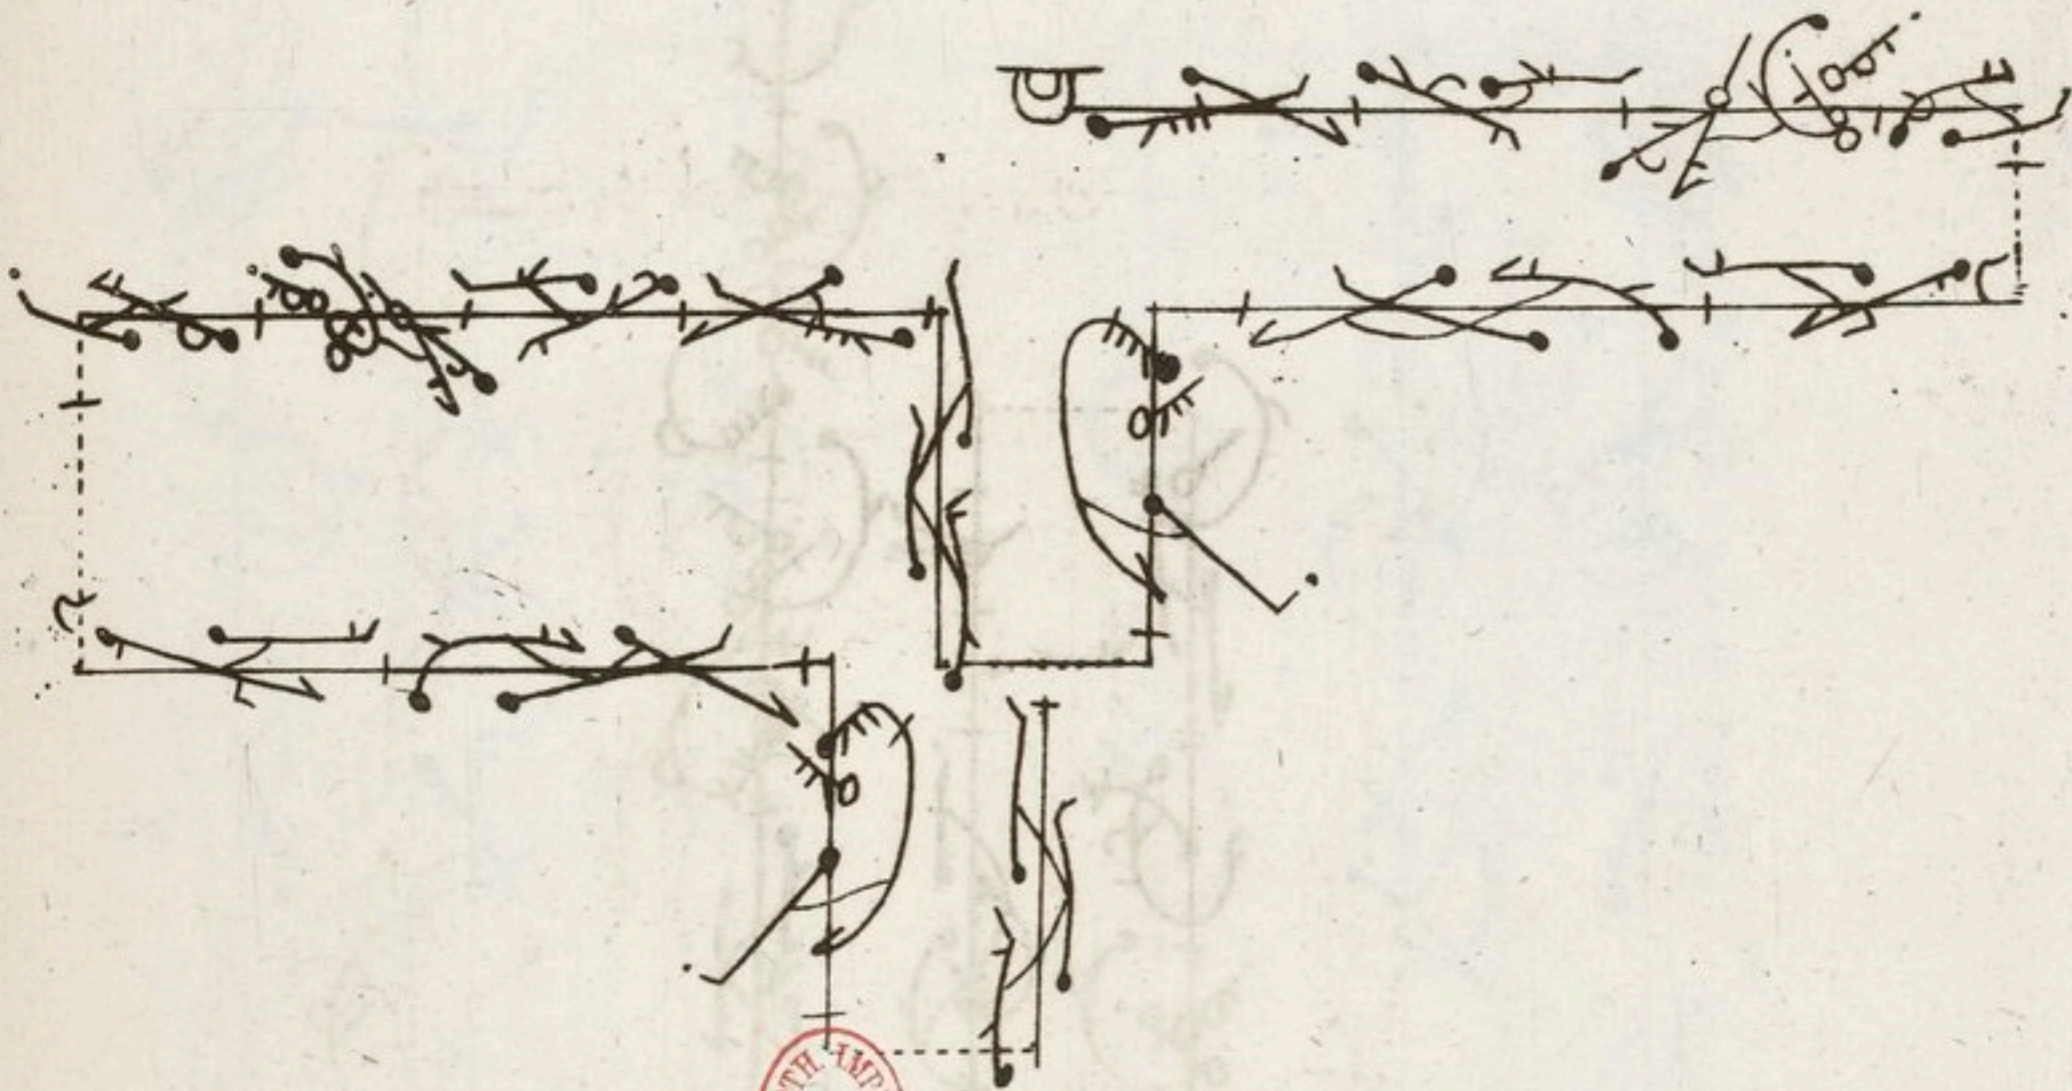 TH. IMP